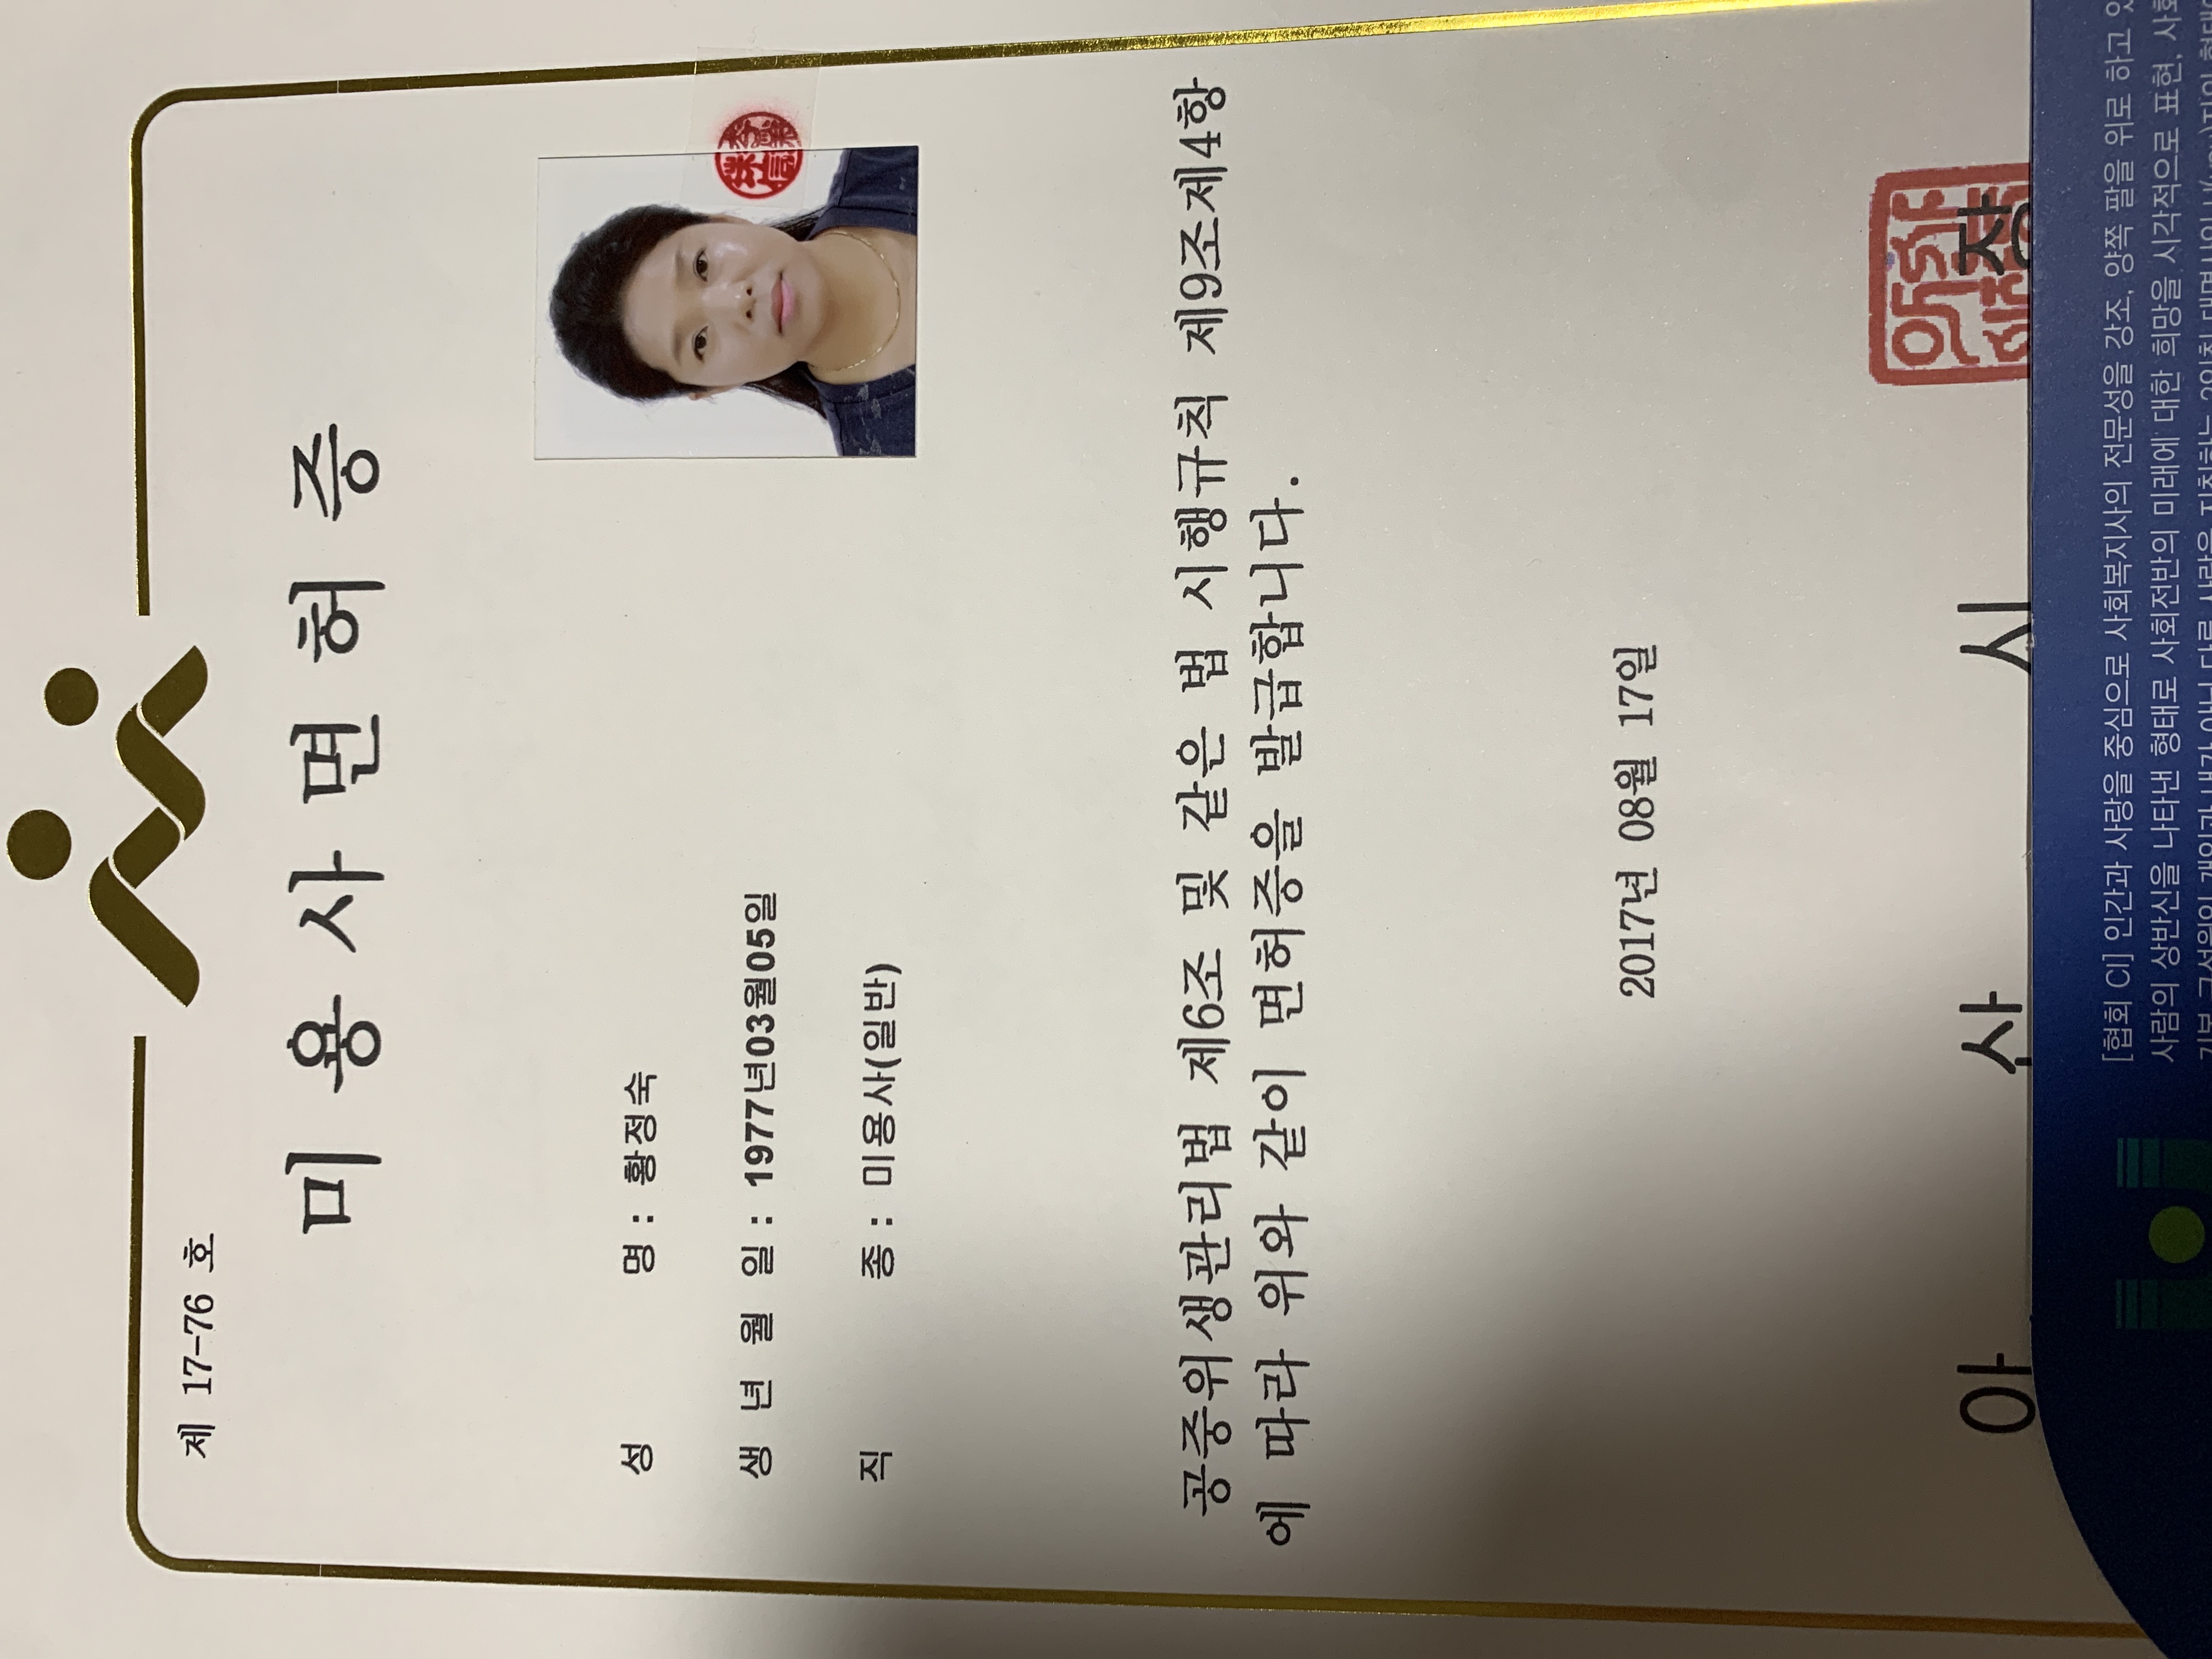 제 17-76 호
미용사면허증
성 명 : 황정숙
생 년 월 일 : 1977년03월05일
직 종 : 미용사(일반)
공중위생관리법 제6조 및 같은 법 시행규칙 제9조제4항
에 따라 위와 같이 면허증을 발급합니다.
2017년 08월 17일
아 산 시 장
[협회 CI] 인간과 사랑을 중심으로 사회복지사의 전문성을 강조, 양쪽 팔을 위로 하고
사람의 상반신을 나타낸 형태로 사회전반의 미래에 대한 희망을 시각적으로 표현,